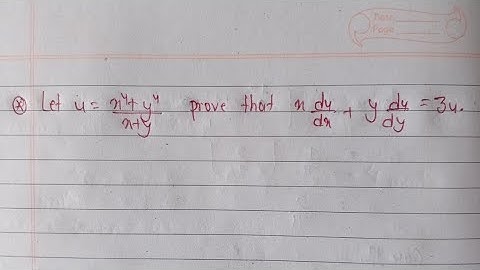 Page
⊛ Let u = x⁴+y⁴/x+y prove that x du/dx + y du/dy = 3u.